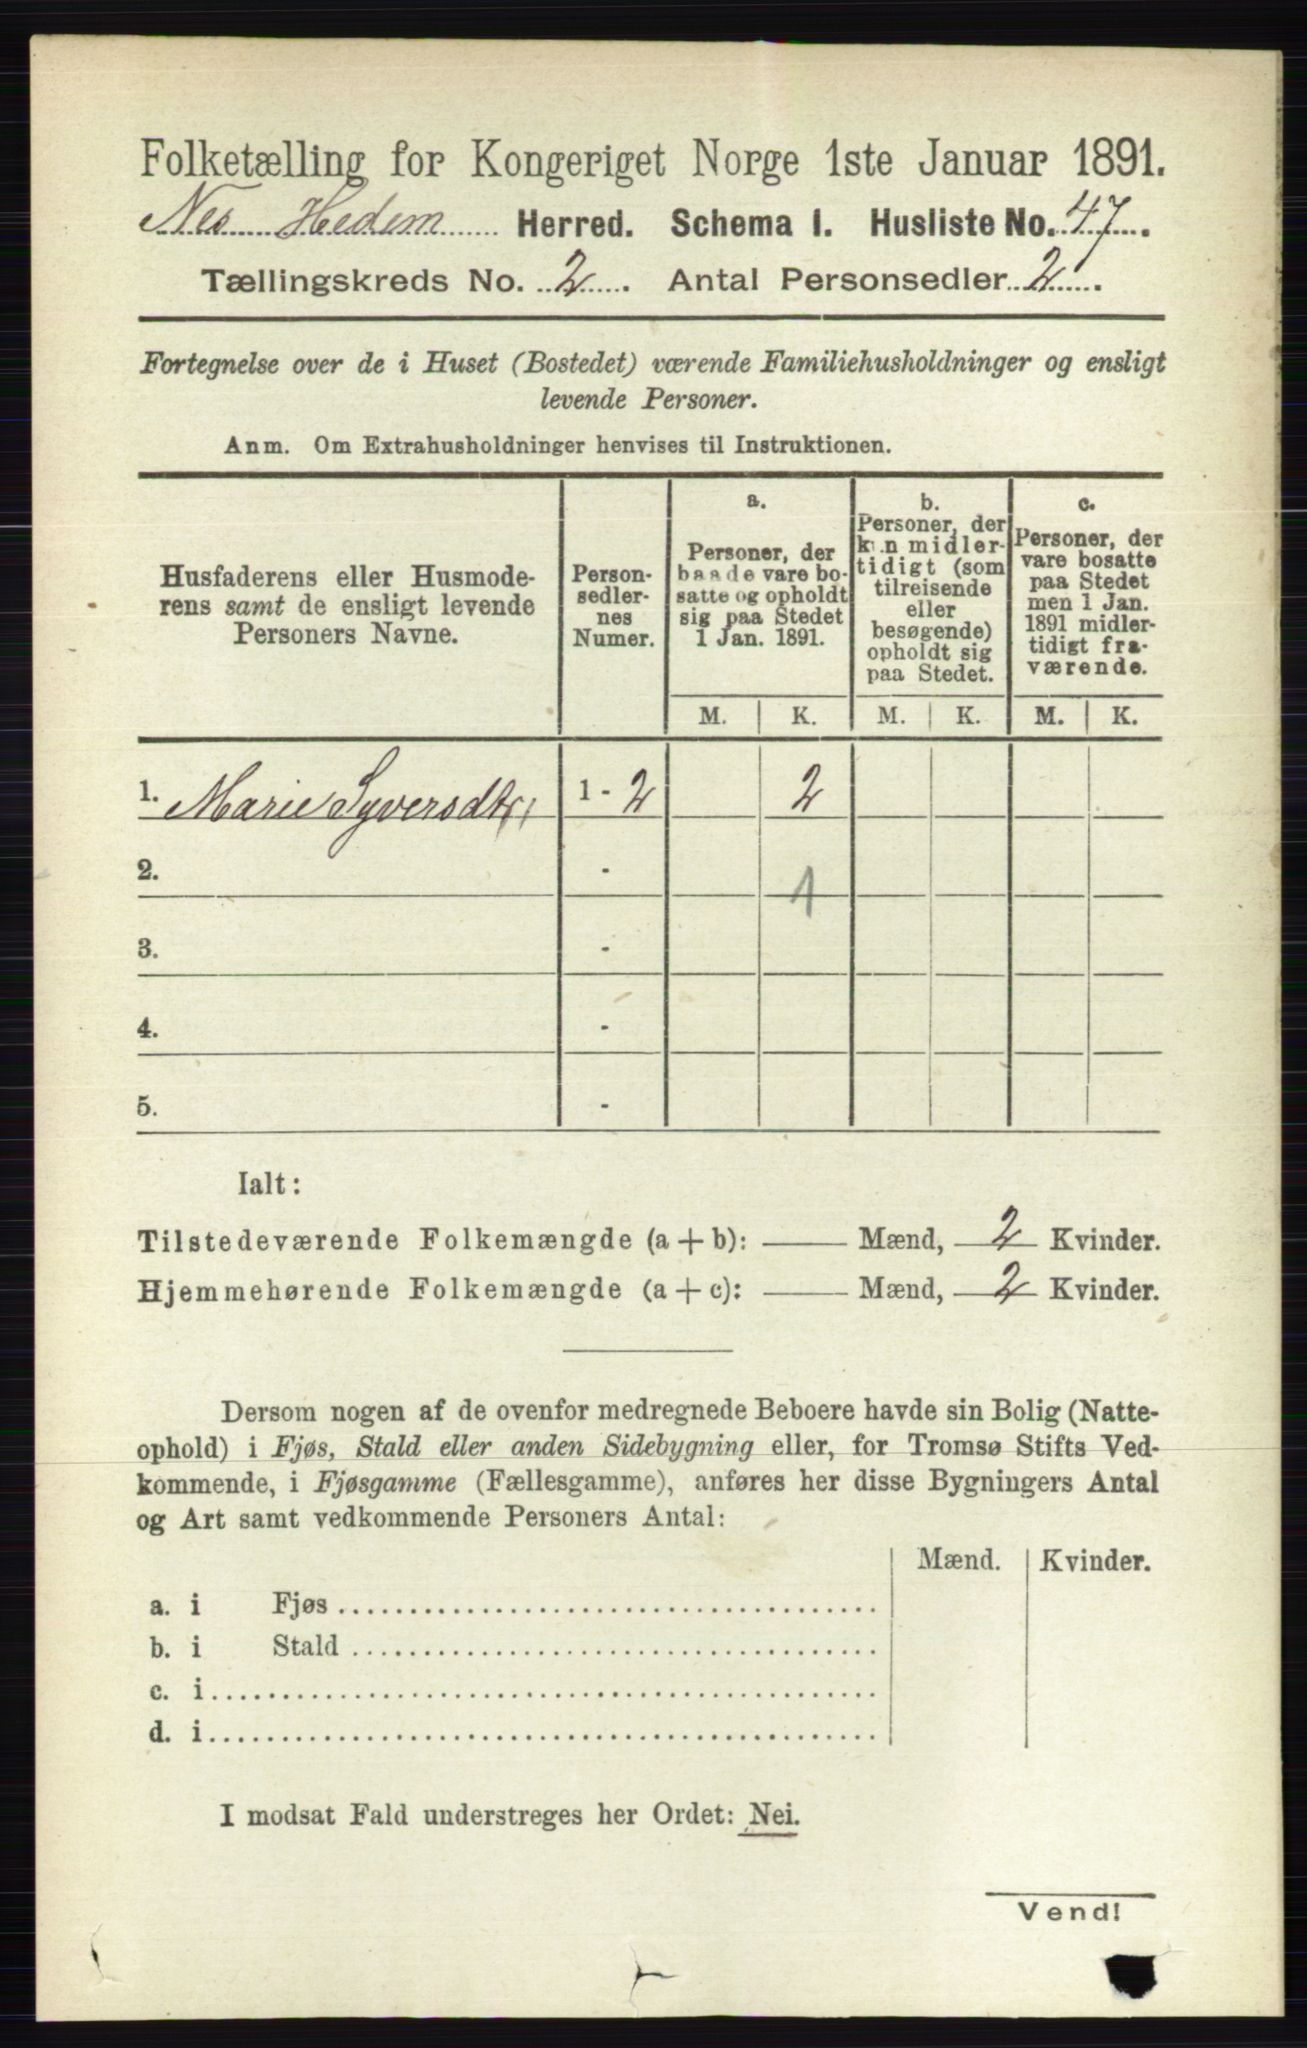 Folketælling for Kongeriget Norge 1ste Januar 1891.
Nes Hedem Herred. Schema I. Husliste No. 47.
Tællingskreds No. 2. Antal Personsedler 2.
Fortegnelse over de i Huset (Bostedet) værende Familiehusholdninger og ensligt
levende Personer.
Anm. Om Extrahusholdninger henvises til Instruktionen.
Husfaderens eller Husmode-
rens samt de ensligt levende
Personers Navne.
Person-
sedler-
nes
Numer.
a.
Personer, der
baade vare bo-
satte og opholdt
sig paa Stedet
1 Jan. 1891.
b.
Personer, der
kun midler-
tidigt (som
tilreisende
eller
besøgende)
opholdt sig
paa Stedet.
c.
Personer, der
vare bosatte
paa Stedet
men 1 Jan.
1891 midler-
tidigt fra-
værende.
M. K. M. K. M. K.
1. Marie Syversdtr 1 - 2 2
2. - 1
3. -
4. -
5. -
Ialt:
Tilstedeværende Folkemængde (a + b): — Mænd, 2 Kvinder.
Hjemmehørende Folkemængde (a + c): — Mænd, 2 Kvinder.
Dersom nogen af de ovenfor medregnede Beboere havde sin Bolig (Natte-
ophold) i Fjøs, Stald eller anden Sidebygning eller, for Tromsø Stifts Ved-
kommende, i Fjøsgamme (Fællesgamme), anføres her disse Bygningers Antal
og Art samt vedkommende Personers Antal:
Mænd. Kvinder.
a. i Fjøs
b. i Stald
c. i
d. i
I modsat Fald understreges her Ordet: Nei.
Vend!